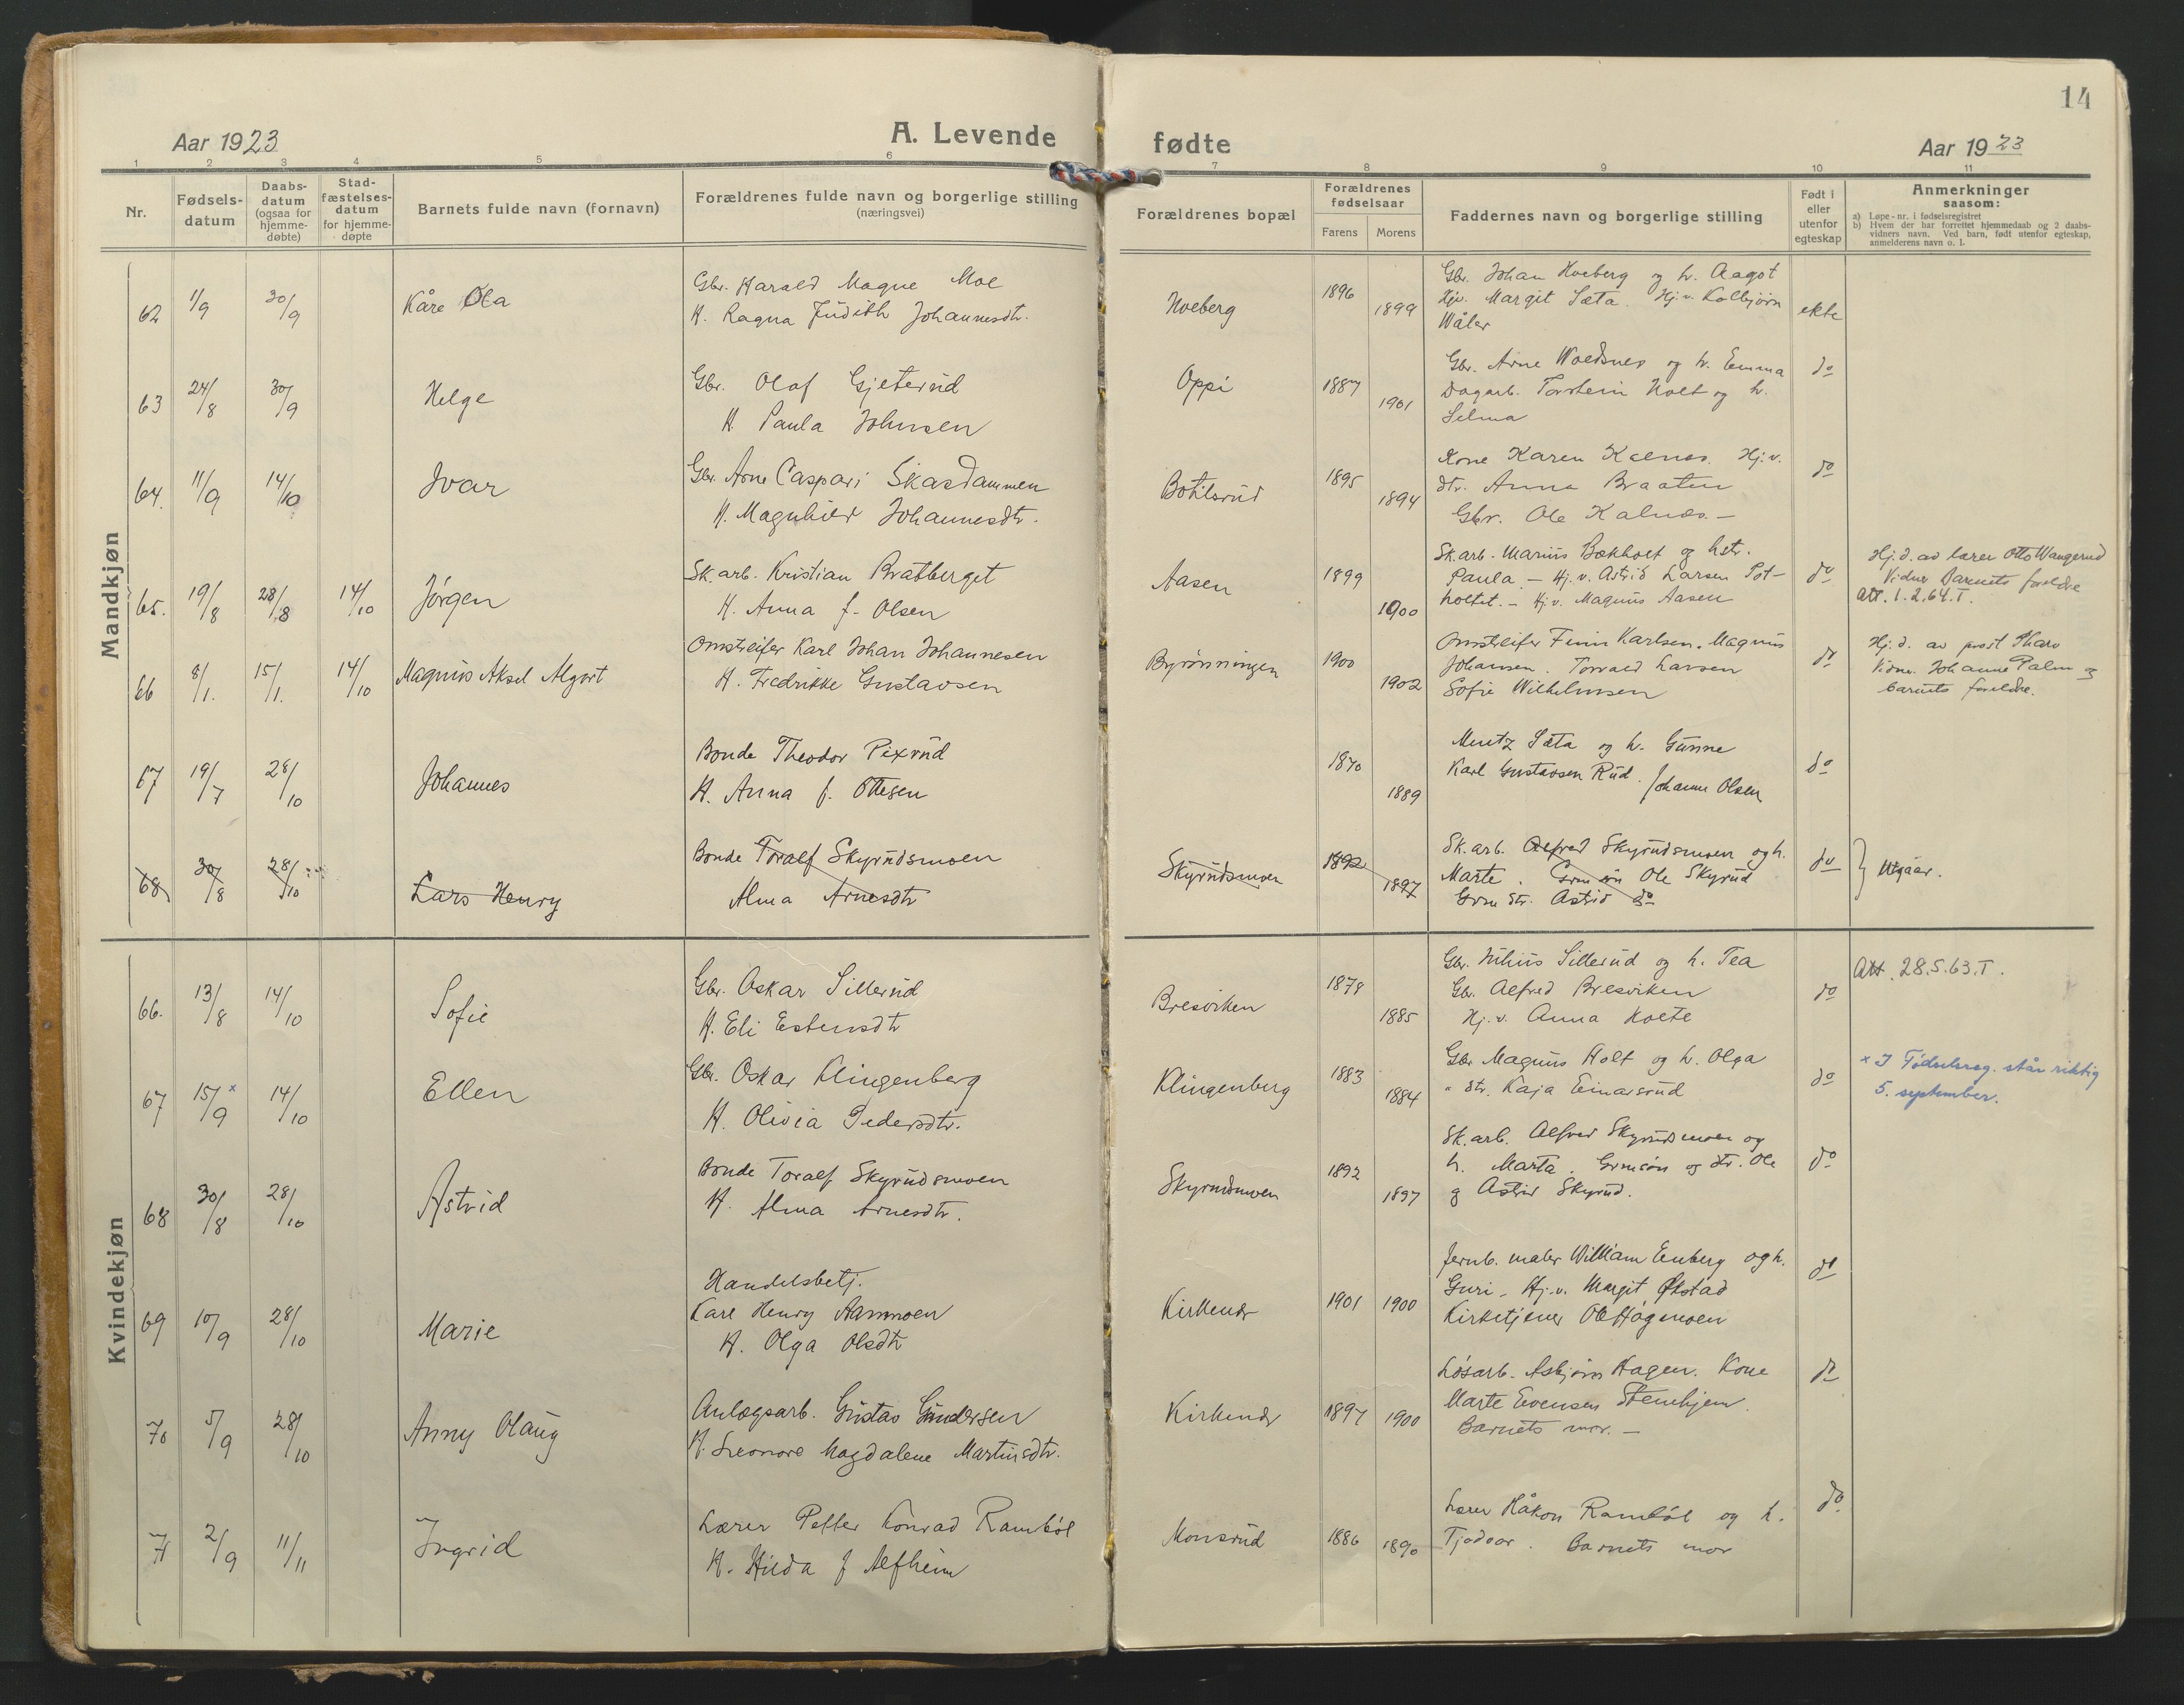 14
Aar 1923
A. Levende
fødte
Aar 1923
1 2 3 4 5 6 7 8 9 10 11
Nr.
Fødsels-
datum
Daabs-
datum
(ogsaa for
hjemme-
døbte)
Stad-
fæstelses-
datum
for hjemme-
døpte
Barnets fulde navn (fornavn)
Forældrenes fulde navn og borgerlige stilling
(næringsvei)
Forældrenes bopæl
Forældrenes
fødselsaar
Farens Morens
Faddernes navn og borgerlige stilling
Født i
eller
utenfor
egteskap
Anmerkninger
saasom:
a) Løpe-nr. i fødselsregistret
b) Hvem der har forrettet hjemmedaab og 2 daabs-
vidners navn. Ved barn, født utenfor egteskap,
anmelderens navn o. l.
Mandkjøn
62 1/9 30/9 Kåre Ola
Gbr. Harald Magne Moe
H. Ragna Judith Johannesdtr.
Hveberg 1896 1899
Gbr. Johan Hveberg og h. Aagot
Hjv. Margit Sæta. Hj.v. Kolbjörn
Wåler
ekte
63 24/8 30/9 Helge
Gbr. Olaf Gjeterud
H. Paula Johnsen
Oppi 1887 1901
Gbr. Arne Woldsnes og h. Emma
Dagarb. Torstein Holt og h.
Selma
do
64. 11/9 14/10 Ivar
Gbr. Arne Caspari Skasdammen
H. Magnhild Johannesdtr.
Botilsrud 1895 1894
Kone Karen Kalnæs. Hj.v.
dtr. Anna Braaten
Gbr. Ole Kalnæs. -
do
65. 19/8 28/8 14/10 Jörgen
Sk.arb. Kristian Bratberget
H. Anna f. Olsen
Aasen 1899 1900
Sk.arb. Marius Bækholt og hstr.
Paula - Hj.v. Astrid Larsen Pot-
holtet. - Hj.v. Magnus Aasen
do
Hj.d. av lærer Otto Wangerud
Vidner Barnets foreldre
Att. 1.2.64.T.
66 8/1. 15/1. 14/10 Magnus Aksel Algort
Omstreifer Karl Johan Johannesen
H. Fredrikke Gustavsen
Byrønningen 1900 1902
Omstreifer Finn Karlsen. Magnus
Johansen. Torvald Larsen
Sofie Wilhelmsen
do
Hj.d. av prost Tharo
Vidner Johanne Palm og
barnets foreldre.
67 19/7 28/10 Johannes
Bonde Theodor Pixrud
H. Anna f. Ottesen
1870 1889
Mentz Sæta og h. Gunne
Karl Gustavsen Rud. Johanne Olsen
do
68 30/8 28/10 Lars Henry
Bonde Toralf Skyrudsmoen
Alma Arnesdtr
Skyrudsmoen 1892 1897
Sk.arb. Alfred Skyrudsmoen og h.
Marte. Grm sön Ole Skyrud
Grm dtr. Astrid do
do } Utgaar.
Kvindekjøn
66. 13/8 14/10 Sofie
Gbr. Oskar Sillerud
H. Eli Estensdtr
Bresviken 1878 1885
Gbr. Julius Sillerud og h. Tea
Gbr. Alfred Bresviken
Hj.v. Anna Holte
do
Att. 28.5.63.T.
67 15/9 x 14/10 Ellen
Gbr. Oskar Klingenberg
H. Olivia Pedersdtr.
Klingenberg 1883 1884
Gbr. Magnus Holt og h. Olga
" dtr. Kaja Einarsrud
do
x I Fødselsreg. står riktig
5. september.
68 30/8 28/10 Astrid
Bonde Toralf Skyrudsmoen
H. Alma Arnesdtr.
Skyrudsmoen 1892 1897
Sk.arb. Alfred Skyrudsmoen og
h. Marta. Grmsön og dtr. Ole
og Astrid Skyrud.
do
69 10/9 28/10 Marie
Handelsbetj.
Karl Henry Aamoen
H. Olga Olsdtr
Kirkenær 1901 1900
Jernb. maler William Enberg og h.
Guri - Hj.v. Margit Økstad
Kirketjener Ole Hagemoen
do
70 5/9 28/10 Anny Olaug
Anlægsarb. Gustav Gundersen
H. Leonore Magdalene Martinsdtr.
Kirkenær 1897 1900
Løsarb. Asbjørn Hagen. Kone
Marte Evensen Stenhjem.
Barnets mor. -
do
71 2/9 11/11 Ingrid
Lærer Petter Konrad Ramböl
H. Hilda f Alfheim
Monsrud 1886 1890
Lærer Håkon Ramböl og h.
Tjodvor. Barnets mor
do